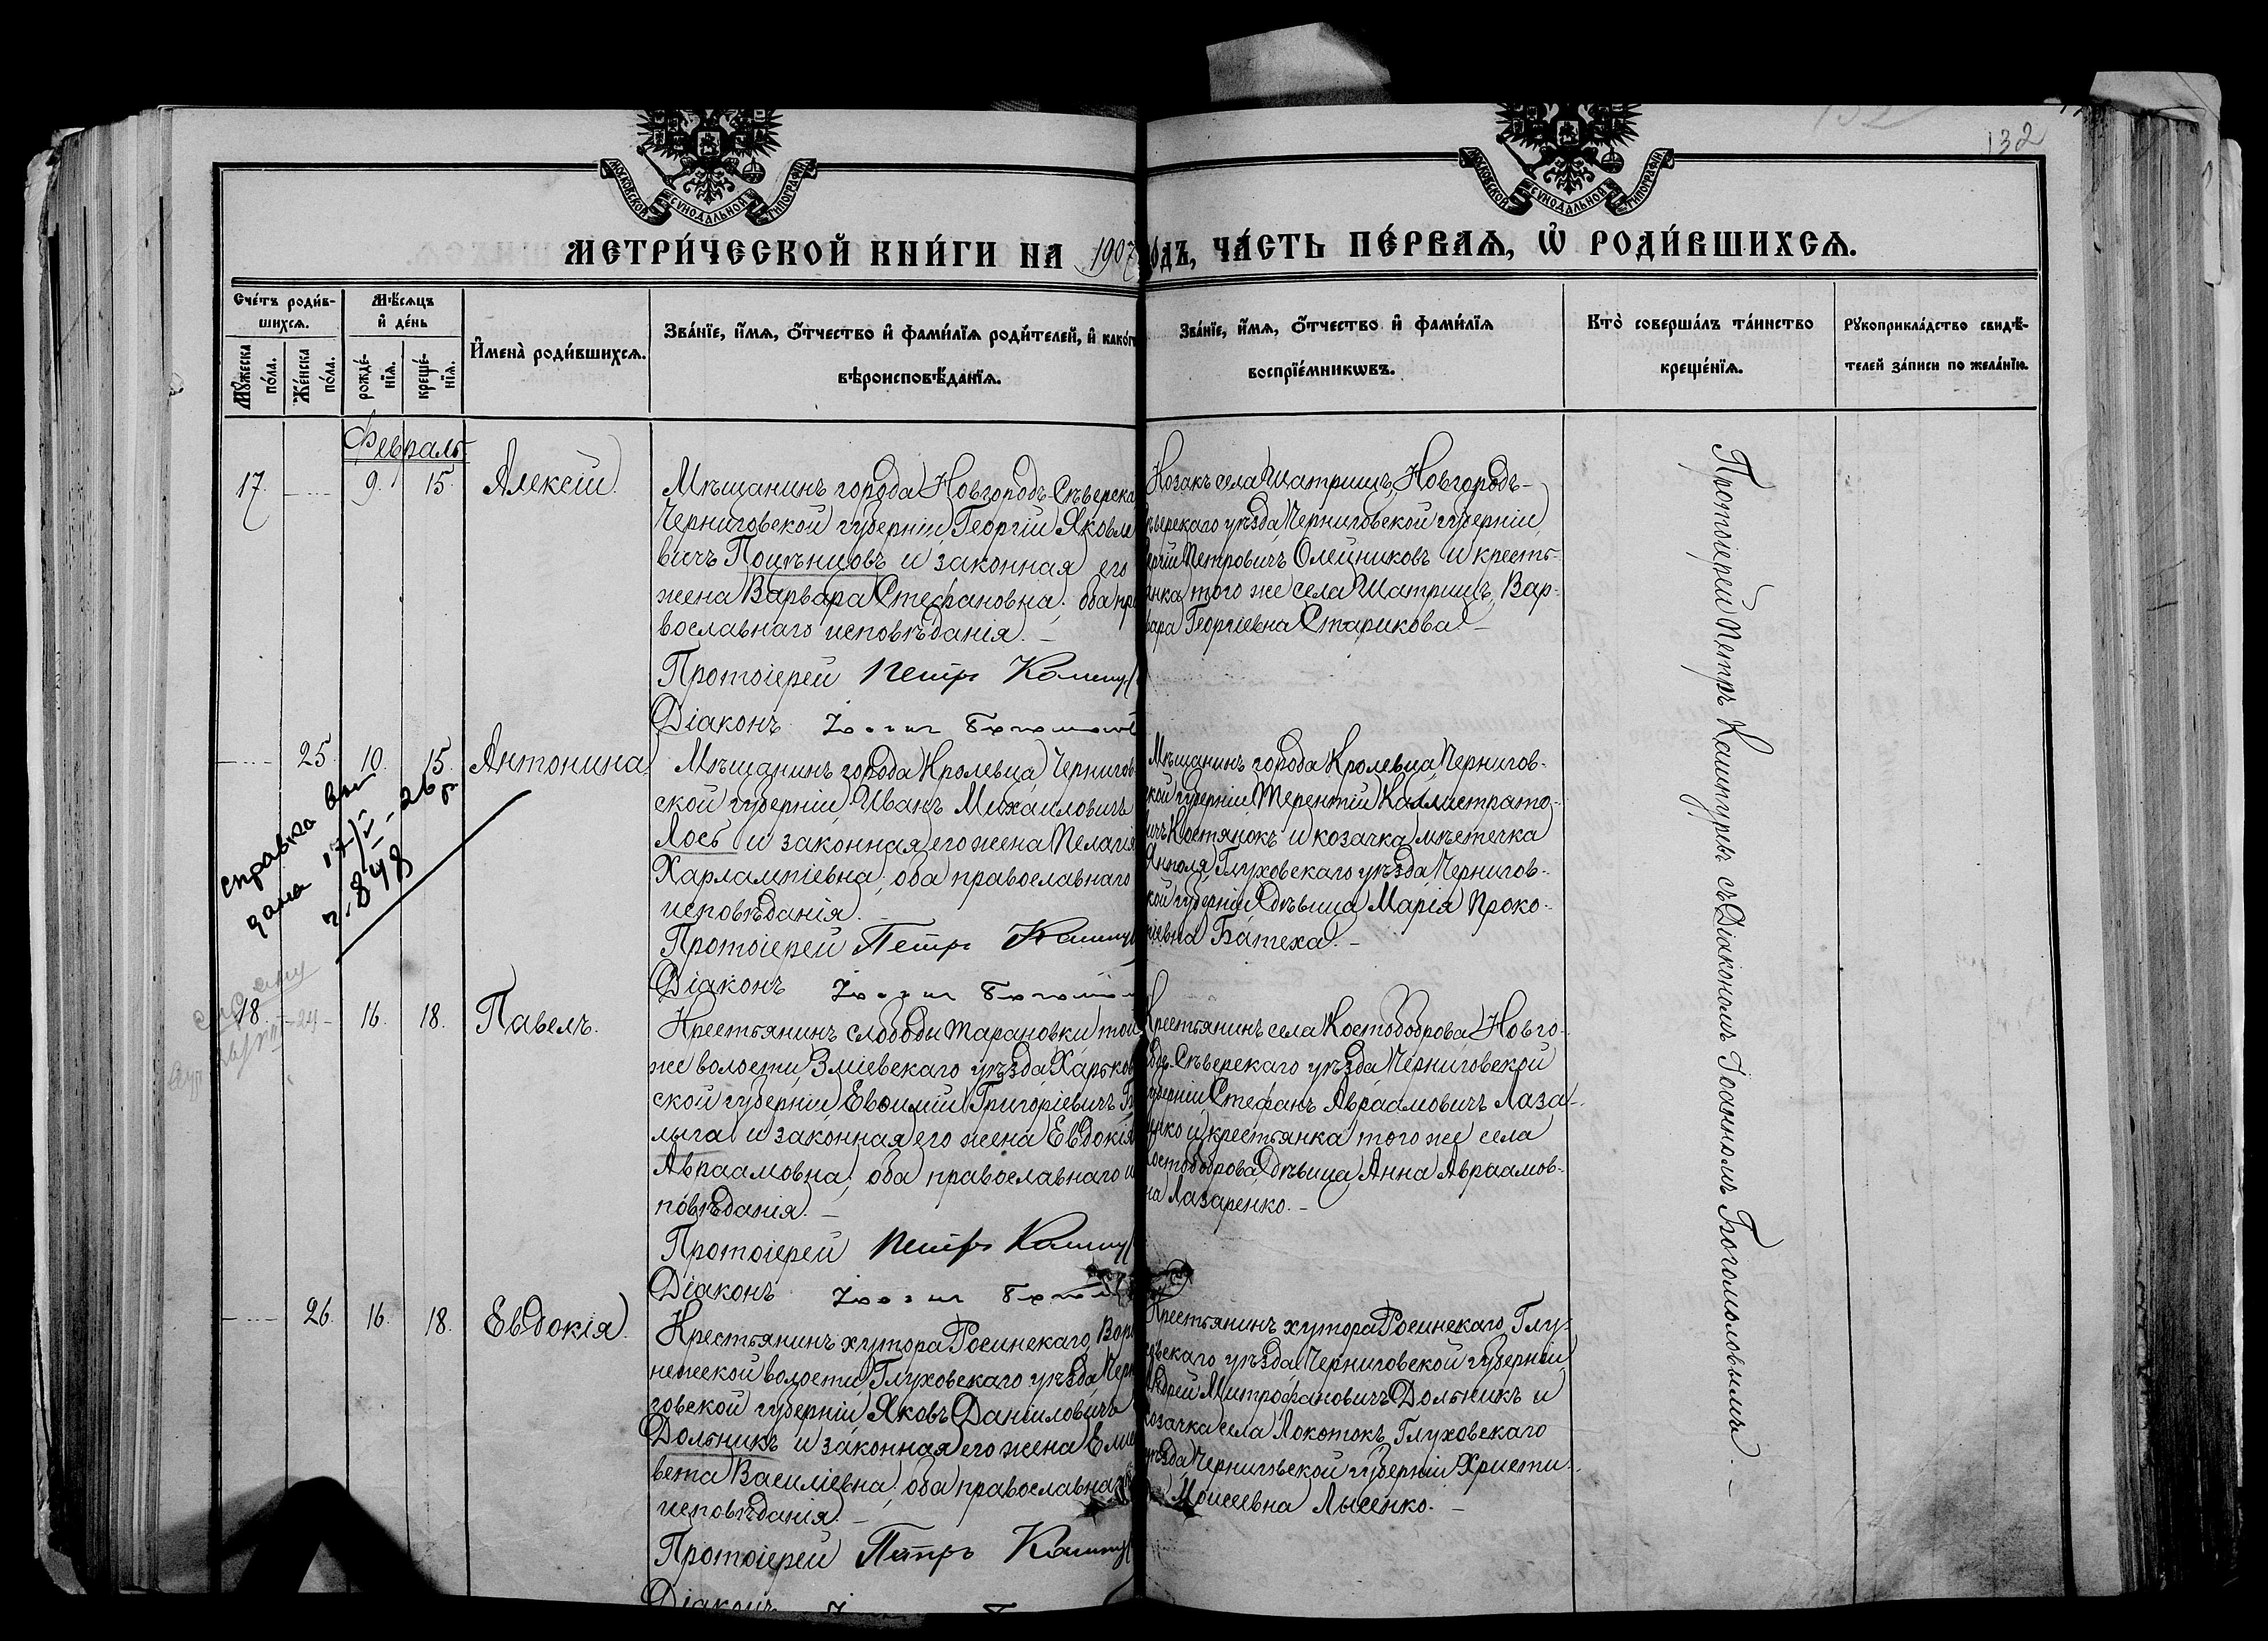 132
МОСКОВСКОЙ СѴНОДАЛЬНОЙ ТИПОГРАФІИ
МОСКОВСКОЙ СѴНОДАЛЬНОЙ ТИПОГРАФІИ
МЕТРИ́ЧЕСКОЙ КНИ́ГИ НА 1907 одъ, ЧА́СТЬ ПЕ́РВАѦ, Ѡ РОДИ́ВШИХСѦ.
Сче́тъ роди́в-
шихсѧ.
Мꙋжеска по́ла.
Же́нска по́ла.
Мѣ́сѧцъ
и҆ де́нь
рожде́-
нїѧ.
креще́-
нїѧ.
И҆мена̀ роди́вшихсѧ.
Зва́нїе, и҆́мѧ, ѻ҆́тчество и҆ фами́лїѧ роди́телей, и҆ како́г
вѣроисповѣ́данїѧ.
Зва́нїе, и҆́мѧ, ѻ҆́тчество и҆ фами́лїѧ
воспрїе́мникѡвъ.
Кто̀ соверша́лъ та́инство
креще́нїѧ.
Рꙋкоприкла́дство свидѣ́-
телей за́писи по жела́нїю.
Февраль
17. 9. 15. Алексій.
Мѣщанинъ города Новгородъ-Сѣверска
Черниговской губерніи, Георгій Яковле
вичъ Поцѣнцовъ и законная его
жена Варвара Стефановна; оба пра
вославнаго исповѣданія. –
Протоіерей Петръ Кашпу
Діаконъ
Козакъ села Шатрищъ, Новгородъ-
ѣверскаго уѣзда, Черниговской губерніи
ергій Петровичъ Олейниковъ и кресть-
янка того же села Шатрищъ, Вар-
вара Георгіевна Старикова. –
25. 10. 15. Антонина.
Мѣщанинъ города Кролевца, Чернигов-
ской губерніи Иванъ Михаиловичъ
Лось и законная его жена Пелагія
Харлампіевна; оба православнаго
исповѣданія. –
Протоіерей Петръ Кашпу
Діаконъ
Мѣщанинъ города Кролевца, Чернигов-
ской губерніи Терентій Каллистрато-
ичъ Костянокъ и козачка мѣстечка
Янполя, Глуховскаго уѣзда, Чернигов-
кой губерніи, дѣвица Марія Проко-
піевна Батеха. –
справка
дана 17/V – 26 г
ч. 848
18. 16. 18. Павелъ.
Крестьянинъ слободы Тарановки той
же волости, Зміевскаго уѣзда, Харьков
ской губерніи, Евѳимій Григоріевичъ Г
лыга и законная его жена Евдокія
Авраамовна; оба православнаго и
повѣданія. –
Протоіерей Петръ Кашпу
Діаконъ
Крестьянинъ села Костоброва Новго-
одъ-Сѣверскаго уѣзда, Черниговской
губерніи, Стефанъ Авраамовичъ Лаза-
енко и крестьянка того же села
Костоброва, дѣвица Анна Авраамов-
на Лазаренко. –
26. 16. 18. Евдокія.
Крестьянинъ хутора Росинскаго, Воро
нежской волости, Глуховскаго уѣзда, Черн
говской губерніи, Яковъ Даніиловичъ
Дольникъ и законная его жена Елиса
вета Василіевна; оба православнаго
исповѣданія. –
Протоіерей Петръ Кашпу
Діаконъ
Крестьянинъ хутора Росинскаго, Глу-
овскаго уѣзда, Черниговской губерніи,
Андрей Митрофановичъ Дольникъ и
козачка села Локотокъ, Глуховскаго
уѣзда, Черниговской губерніи, Христи-
Моисеевна Лысенко. –
Протоіерей Петръ Кашпуръ съ Діакономъ Іоанномъ Богомоловымъ. –